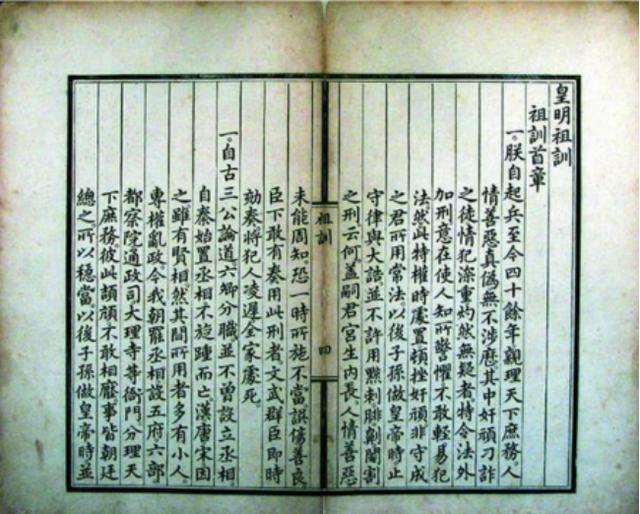 皇明祖訓
祖訓首章
一。朕自起兵至今四十餘年親理天下庶務人
情善惡真偽無不涉歷其中奸頑刁詐
之徒情犯深重灼然無疑者特令法外
加刑意在使人知所警懼不敢輕易犯
法然此特權時處置頓挫奸頑非守成
之君所用常法以後子孫做皇帝時止
守律與大誥並不許用黥刺腓劓閹割
之刑云何蓋嗣君宮生內長人情善惡
祖訓
四
未能周知恐一時所施不當誤傷善良
臣下敢有奏用此刑者文武群臣即時
劾奏將犯人凌遲全家處死。
一。自古三公論道六卿分職並不曾設立丞相
自秦始置丞相不旋踵而亡。漢唐宋因
之雖有賢相。然其間所用者多有小人。
專權亂政今我朝罷丞相設五府六部
都察院通政司大理寺等衙門分理天
下庶務彼此頡頏不敢相壓。事皆朝廷
總之所以穩當以後子孫做皇帝時並